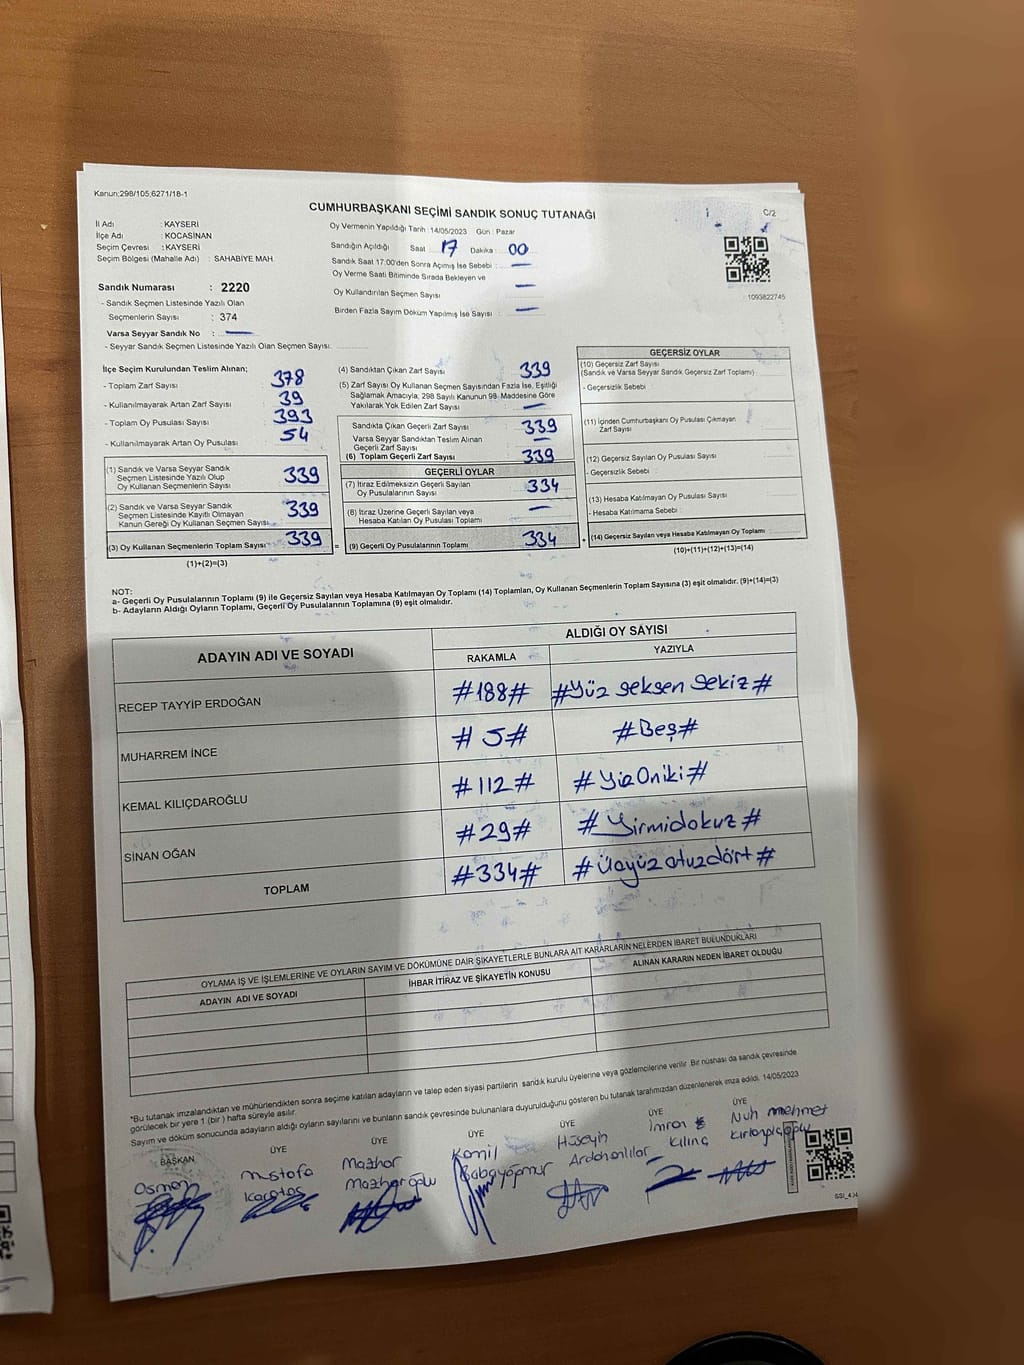 Kanun:298/105,6271/18-1
CUMHURBAŞKANI SEÇİMİ SANDIK SONUÇ TUTANAĞI
C/2
İl Adı : KAYSERİ
İlçe Adı : KOCASİNAN
Seçim Çevresi : KAYSERİ
Seçim Bölgesi (Mahalle Adı) : SAHABİYE MAH.
Oy Vermenin Yapıldığı Tarih : 14/05/2023 Gün : Pazar
Sandığın Açıldığı Saat : 17 Dakika : 00
Sandık Saat 17:00'den Sonra Açımış İse Sebebi : —
Oy Verme Saati Bitiminde Sırada Bekleyen ve
Oy Kullandırılan Seçmen Sayısı —
Birden Fazla Sayım Döküm Yapılmış İse Sayısı : —
1093822745
Sandık Numarası : 2220
- Sandık Seçmen Listesinde Yazılı Olan
Seçmenlerin Sayısı : 374
Varsa Seyyar Sandık No : —
- Seyyar Sandık Seçmen Listesinde Yazılı Olan Seçmen Sayısı:
İlçe Seçim Kurulundan Teslim Alınan;
- Toplam Zarf Sayısı 378
- Kullanılmayarak Artan Zarf Sayısı 39
- Toplam Oy Pusulası Sayısı 393
- Kullanılmayarak Artan Oy Pusulası 54
(1) Sandık ve Varsa Seyyar Sandık
Seçmen Listesinde Yazılı Olup
Oy Kullanan Seçmenlerin Sayısı 339
(2) Sandık ve Varsa Seyyar Sandık
Seçmen Listesinde Kayıtlı Olmayan
Kanun Gereği Oy Kullanan Seçmen Sayısı 339
(3) Oy Kullanan Seçmenlerin Toplam Sayısı 339
(1)+(2)=(3)
(4) Sandıktan Çıkan Zarf Sayısı 339
(5) Zarf Sayısı Oy Kullanan Seçmen Sayısından Fazla İse, Eşitliği
Sağlamak Amacıyla, 298 Sayılı Kanunun 98. Maddesine Göre
Yakılarak Yok Edilen Zarf Sayısı —
Sandıkta Çıkan Geçerli Zarf Sayısı 339
Varsa Seyyar Sandıktan Teslim Alınan
Geçerli Zarf Sayısı —
(6) Toplam Geçerli Zarf Sayısı 339
GEÇERLİ OYLAR
(7) İtiraz Edilmeksizin Geçerli Sayılan
Oy Pusulalarının Sayısı 334
(8) İtiraz Üzerine Geçerli Sayılan veya
Hesaba Katılan Oy Pusulası Toplamı —
= (9) Geçerli Oy Pusulalarının Toplamı 334
GEÇERSİZ OYLAR
(10) Geçersiz Zarf Sayısı
(Sandık ve Varsa Seyyar Sandık Geçersiz Zarf Toplamı)
- Geçersizlik Sebebi
(11) İçinden Cumhurbaşkanı Oy Pusulası Çıkmayan
Zarf Sayısı
(12) Geçersiz Sayılan Oy Pusulası Sayısı
- Geçersizlik Sebebi :
(13) Hesaba Katılmayan Oy Pusulası Sayısı
- Hesaba Katılmama Sebebi :
+ (14) Geçersiz Sayılan veya Hesaba Katılmayan Oy Toplamı
(10)+(11)+(12)+(13)=(14)
NOT:
a- Geçerli Oy Pusulalarının Toplamı (9) ile Geçersiz Sayılan veya Hesaba Katılmayan Oy Toplamı (14) Toplamları, Oy Kullanan Seçmenlerin Toplam Sayısına (3) eşit olmalıdır. (9)+(14)=(3)
b- Adayların Aldığı Oyların Toplamı, Geçerli Oy Pusulalarının Toplamına (9) eşit olmalıdır.
ADAYIN ADI VE SOYADI ALDIĞI OY SAYISI
RAKAMLA YAZIYLA
RECEP TAYYİP ERDOĞAN #188# #Yüz seksen sekiz#
MUHARREM İNCE #5# #Beş#
KEMAL KILIÇDAROĞLU #112# #YüzOniki#
SİNAN OĞAN #29# #Yirmidokuz#
TOPLAM #334# #Üçyüz otuzdört#
OYLAMA İŞ VE İŞLEMLERİNE VE OYLARIN SAYIM VE DÖKÜMÜNE DAİR ŞİKAYETLERLE BUNLARA AİT KARARLARIN NELERDEN İBARET BULUNDUKLARI
ADAYIN ADI VE SOYADI İHBAR İTİRAZ VE ŞİKAYETİN KONUSU ALINAN KARARIN NEDEN İBARET OLDUĞU
*Bu tutanak imzalandıktan ve mühürlendikten sonra seçime katılan adayların ve talep eden siyasi partilerin sandık kurulu üyelerine veya gözlemcilerine verilir. Bir nüshası da sandık çevresinde
görülecek bir yere 1 (bir) hafta süreyle asılır.
Sayım ve döküm sonucunda adayların aldığı oyların sayılarını ve bunların sandık çevresinde bulunanlara duyurulduğunu gösteren bu tutanak tarafımızdan düzenlenerek imza edildi. 14/05/2023
BAŞKAN ÜYE ÜYE ÜYE ÜYE ÜYE ÜYE
Osman Mustafa Mazhar Kamil Hüseyin İmran Nuh Mehmet
Karataş Mazharoğlu Babayağmur Ardahanlılar Kılınç